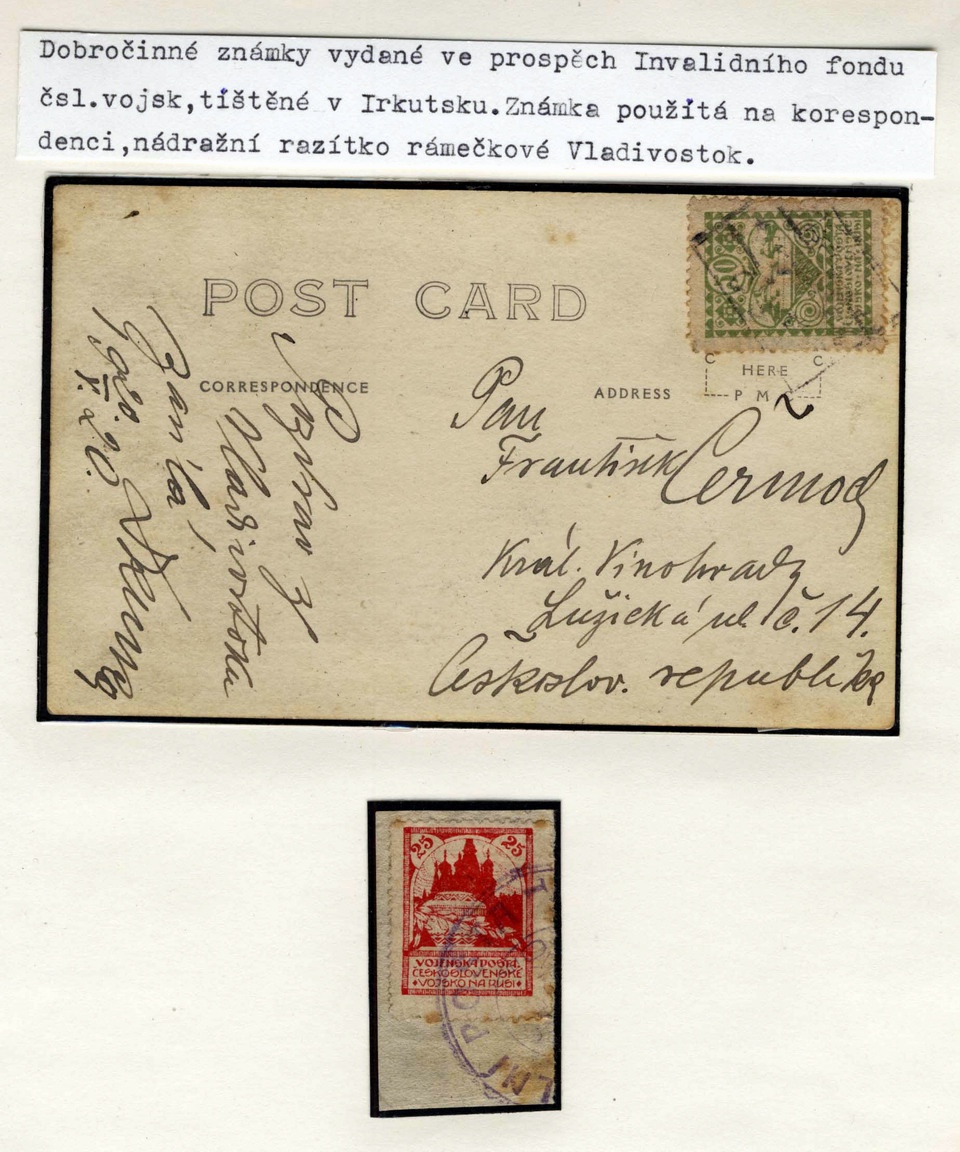 Dobročinné známky vydané ve prospěch Invalidního fondu
čsl.vojsk,tištěné v Irkutsku.Známka použítá na korespon-
denci,nádražní razítko rámečkové Vladivostok.
POST CARD
CORRESPONDENCE
ADDRESS
HERE
C C
P M
50
Pozdrav z
Vladivostoku
zasílá
1920
Pan
František Čermod
Král. Vinohrady
Lužická ul. č. 14.
Českoslov. republika
25 25
VOJENSKA POŠTA
ČESKOSLOVENSKÉ
VOJSKO NA RUSI